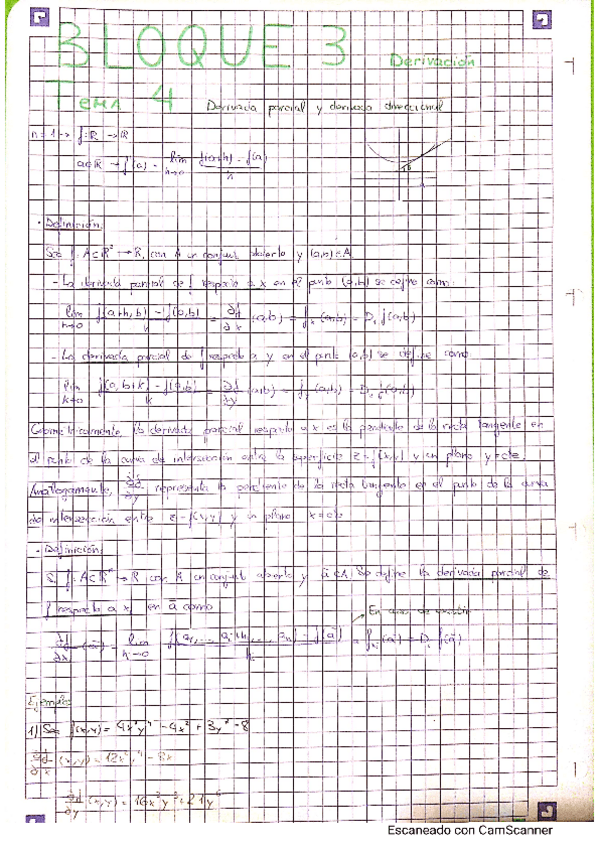 BLOQUE 3 Derivación
Tema 4 Derivada parcial y derivada direccional
n = 1 → f: R → R
a∈R → f'(a) = lim h→0 f(a+h) - f(a) / h
· Definición
Sea f: A⊂R² → R, con A un conjunto abierto y (a,b)∈A
- La derivada parcial de f respecto a x en el punto (a,b) se define como:
lim h→0 f(a+h, b) - f(a,b) / h = ∂f/∂x (a,b) = fx (a,b) = D₁ f(a,b)
- La derivada parcial de f respecto a y en el punto (a,b) se define como
lim k→0 f(a, b+k) - f(a,b) / k = ∂f/∂y (a,b) = (a,b) = f(a,b)
Geométricamente, la derivada parcial respecto a x es la pendiente de la recta tangente en
el punto de la curva de intersección entre la superficie z = f(x,y) y un plano y = cte.
Analogamente, ∂f/∂y representa la pendiente de la recta tangente en el punto de la curva
de intersección entre z = f(x,y) y un plano x = cte
· Definición
f: A⊂Rⁿ → R con A un conjunto abierto y a∈A. Se define la derivada parcial de
f respecto a x en a como
En
lim h→0 f(a₁, ..., , ..., aₙ) - f(a) / h
Ejemplo
1) Sea f(x,y) = 4x³y⁴ - 4x² + 3y⁷ - 8
∂f/∂x (x,y) = 12x²y⁴ - 8x
∂f/∂y (x,y) = 16x³y³ + 21y⁶
Escaneado con CamScanner